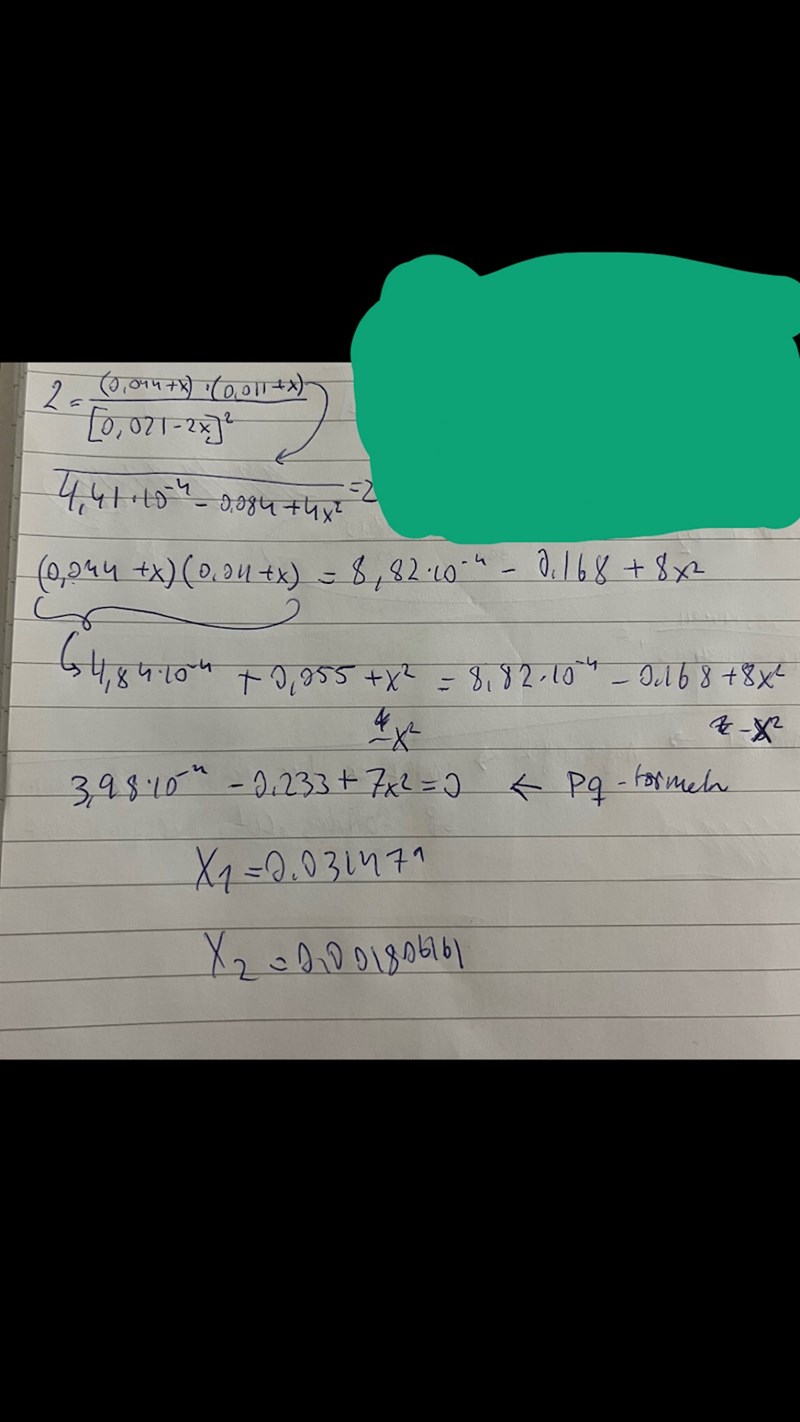 2 = (0,044+x)·(0,011+x) / [0,021-2x]²
4,41·10⁻⁴ - 0.084 + 4x² = 2
(0,044 +x)(0.011+x) = 8,82·10⁻⁴ - 0.168 + 8x²
4,84·10⁻⁴ + 0,055 + x² = 8,82·10⁻⁴ - 0.168 + 8x²
-x² -x²
3,98·10⁻⁴ - 0.233 + 7x² = 0 ← Pq-formeln
X₁ = 0.031479
X₂ = 0.001806161